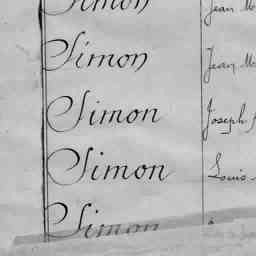 Simon Jean M
Simon Jean M
Simon Joseph
Simon Louis
Simon